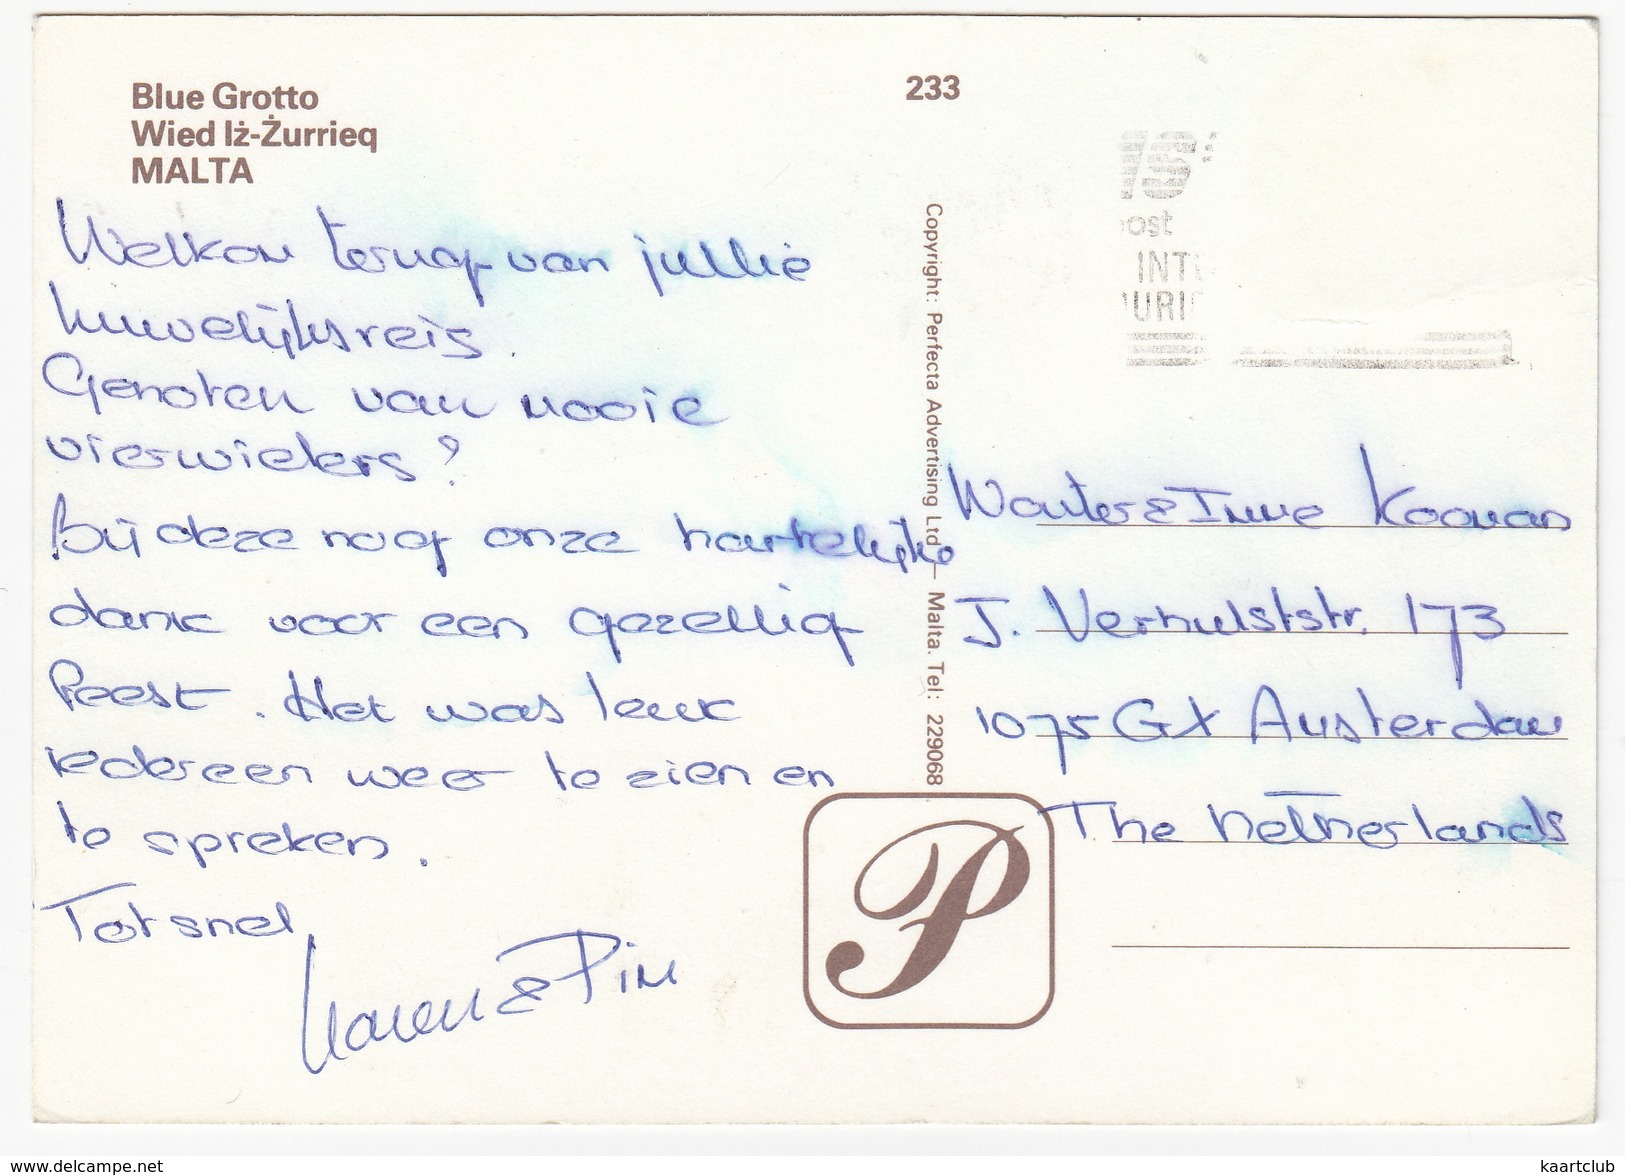 Blue Grotto
Wied Iż-Żurrieq
MALTA
233
Welkom terug van jullie
huwelijksreis.
Genoten van mooie
vierwielers?
Bij deze nog onze hartelijke
dank voor een gezellig
feest. Het was leuk
iedereen weer te zien en
te spreken.
Tot snel
Karen & Pim
Copyright: Perfecta Advertising Ltd — Malta. Tel: 229068
ost
INT
URI
Wouter & Imme Kooman
J. Verhulststr. 173
1075 GX Amsterdam
The Netherlands
P
www.delcampe.net
kaartclub